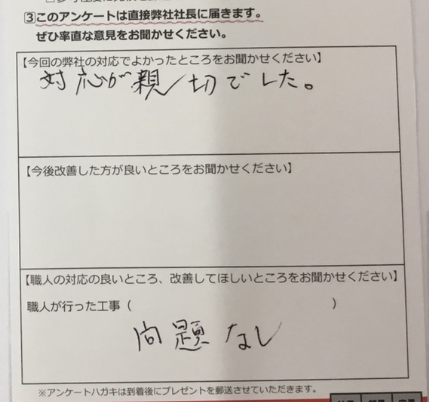 ③このアンケートは直接弊社社長に届きます。
ぜひ率直な意見をお聞かせください。
【今回の弊社の対応でよかったところをお聞かせください】
対応が親切でした。
【今後改善した方が良いところをお聞かせください】
【職人の対応の良いところ、改善してほしいところをお聞かせください】
職人が行った工事（　　　　　　　　　　）
問題なし
※アンケートハガキは到着後にプレゼントを郵送させていただきます。